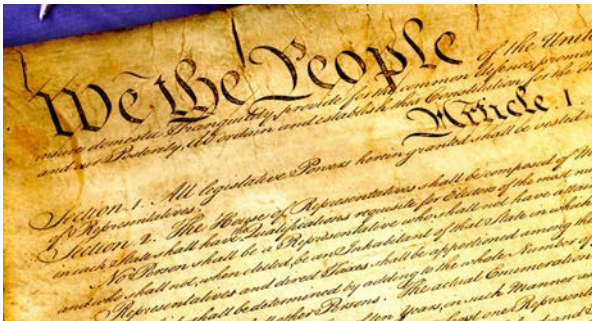 We the People of the United
insure domestic Tranquility, provide for the common defence, promote
and our Posterity, do ordain and establish this Constitution for the
Article. I.
Section. 1. All legislative Powers herein granted shall be vested
of Representatives.
Section. 2. The House of Representatives shall be composed of
in each State shall have the Qualifications requisite for Electors of the most
No Person shall be a Representative who shall not have
and who shall not, when elected, be an Inhabitant of that State in which
Representatives and direct Taxes shall be apportioned among the
shall be determined by adding to the whole Number of
other Persons. The actual Enumeration
Years, in such Manner as
least one Represent